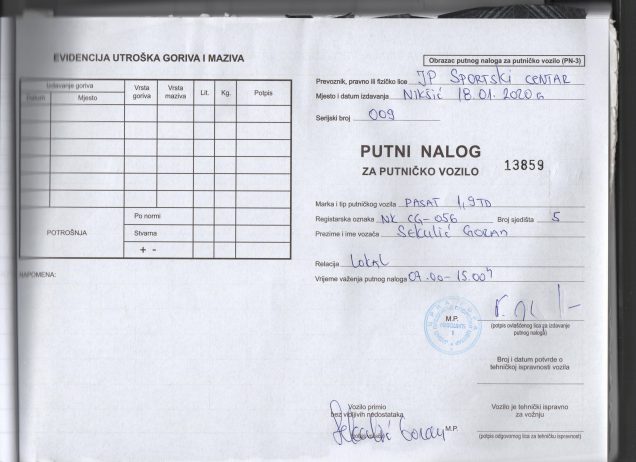 EVIDENCIJA UTROŠKA GORIVA I MAZIVA
Izdavanje goriva
Datum Mjesto Vrsta goriva Vrsta maziva Lit. Kg. Potpis
POTROŠNJA
Po normi
Stvarna
+ -
NAPOMENA:
Obrazac putnog naloga za putničko vozilo (PN-3)
Prevoznik, pravno ili fizičko lice JP SPORTSKI CENTAR
Mjesto i datum izdavanja NIKŠIĆ 18.01.2020 G
Serijski broj 009
PUTNI NALOG
ZA PUTNIČKO VOZILO 13859
Marka i tip putničkog vozila PASAT 1,9 TD
Registarska oznaka NK CG-056 Broj sjedišta 5
Prezime i ime vozača SEKULIĆ GORAN
Relacija LOKAL
Vrijeme važenja putnog naloga 07.00-15.00h
M.P.
(potpis ovlašćenog lica za izdavanje
putnog naloga)
Broj i datum potvrde o
tehničkoj ispravnosti vozila
Vozilo primio
bez vidljivih nedostataka
Vozilo je tehnički ispravno
za vožnju
Sekulić Goran M.P.
(potpis odgovornog lica za tehničku ispravnost)